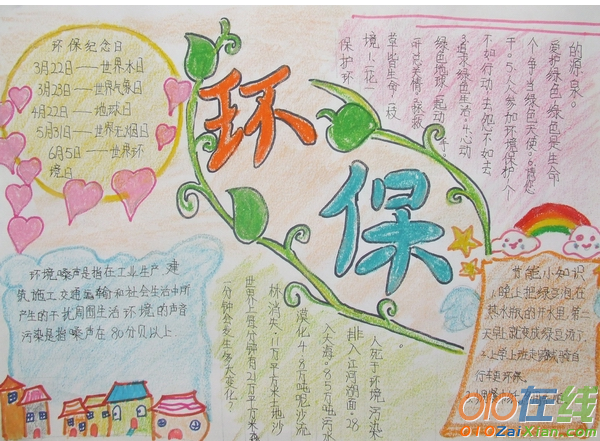 环保纪念日
3月22日——世界水日
3月23日——世界气象日
4月22日——地球日
5月31日——世界无烟日
6月5日——世界环
境日
环
保
保护环
境1.一花
草皆生命,一枝
总关情2.拯救
绿色地球一起动手。
3.追求绿色生活4.心动
不如行动去怨不如去
干。5.人人参加环境保护,个
个争当绿色天使。6.
爱护绿色绿色是生命
的源泉。
环境噪声是指在工业生产、建
筑施工交通运输和社会生活中所
产生的干扰周围生活环境的声音
污染是指噪声在80分贝以上.
一分钟会发生多大变化?
世界上每分钟有21万平方米森
林消失,11万平方米土地沙
漠化4.8万吨泥沙流
入大海,8.5万吨污水
排入江河湖面.28
人死于环境污染
节能小知识
1.晚上把绿豆泡在
热水瓶的开水里,第二
天早就变成绿豆汤了.
2.上学上班走路或骑自
行车更环保.
010在线
010ZaiXian.com